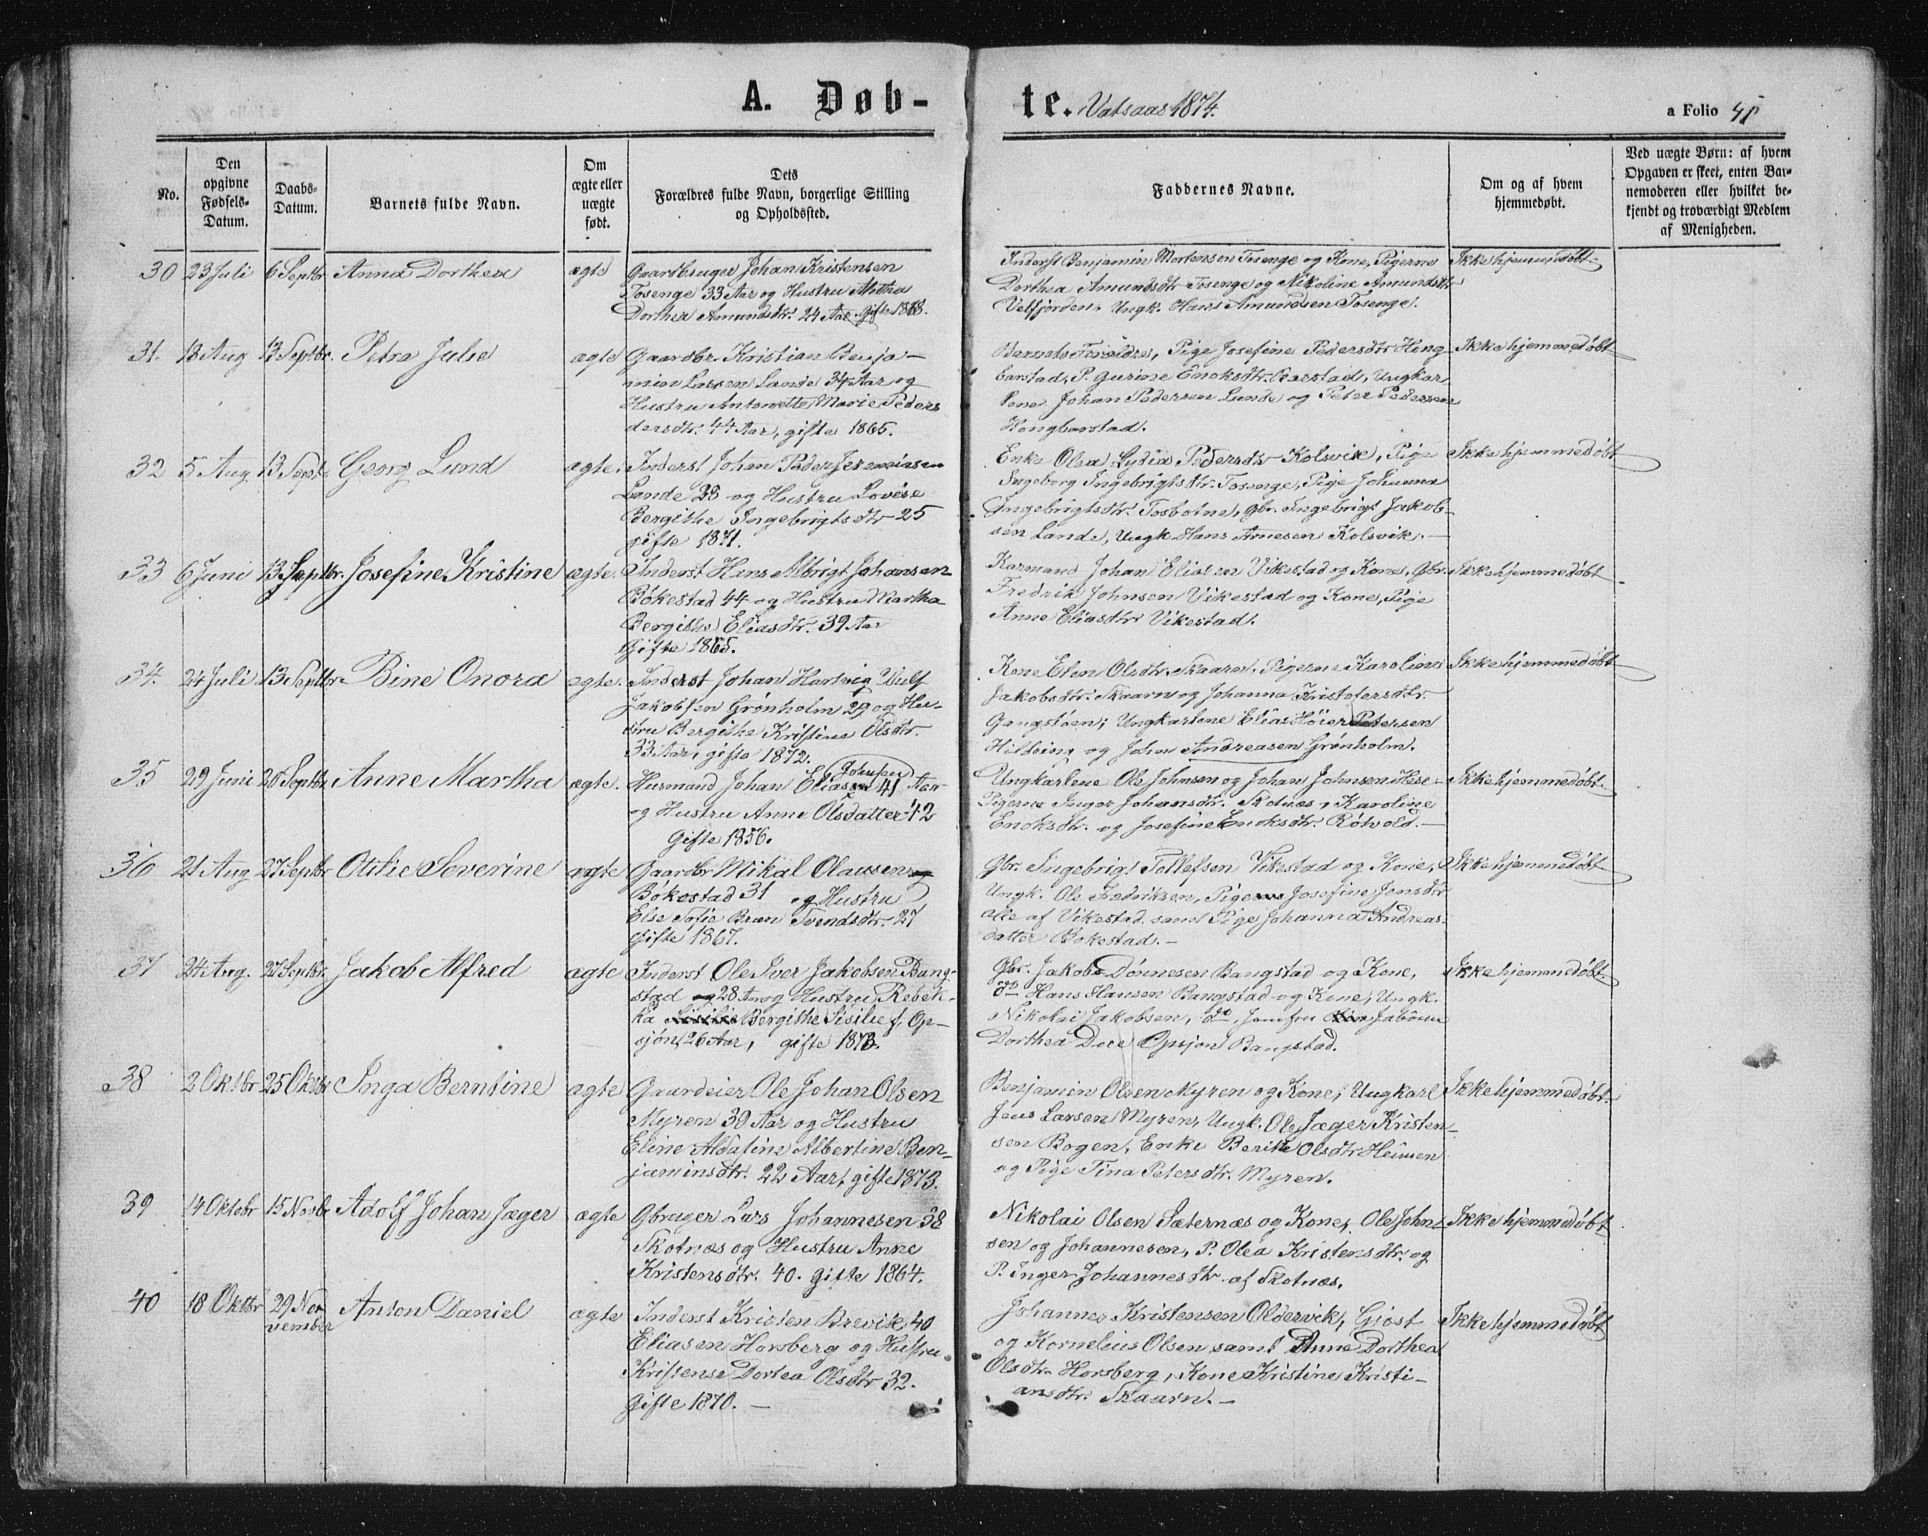 A. Døb-
te. Vatsaas 1874.
a Folio 45
No.
Den opgivne Fødsels-Datum.
Daabs-Datum.
Barnets fulde Navn.
Om ægte eller uægte født.
Dets Forældres fulde Navn, borgerlige Stilling og Opholdssted.
Faddernes Navne.
Om og af hvem hjemmedøbt.
Ved uægte Børn: af hvem Opgaven er skeet, enten Barnemoderen eller hvilket bekjendt og troværdigt Medlem af Menigheden.
30 23 Juli 6 Septbr Anna Dorthea ægte
Gaardbruger Johan Kristensen
Tosenge 33 Aar og Hustru Anthea
Dorthea Amundsdtr. 24 Aar. gifte 1873.
Inderst Benjamin Mortensen Tosenge og Kone, Pigerne
Dorthea Amundsdtr Tosenge og Nikoline Amundsdtr
Velfjorden, Ungk. Hans Amundsen Tosenge.
Ikke hjemmedøbt
31. 18 Aug 13 Septbr. Petra Julie ægte
Gaardbr. Kristian Benja-
min Larsen Lande 34 Aar og
Hustru Antonette Marie Peders
dersdtr. 44 Aar, gifte 1865.
Barnets Forældre, Pige Josefine Pedersdtr Heng-
barstad, P. Gurine Enoksdtr. Aarstad, Ungkar
lene Johan Pedersen Lunde og Peter Pedersen
Hongbarstad.
Ikke hjemmedøbt
32 5 Aug 13 Septbr Georg Lund ægte.
Inderst Johan Peder Jeremiasen
Lande 28 og Hustru Lovise
Bergithe Ingebrigtsdtr 25
gifte 1871.
Enke Olea Lydia Pedersdtr Kolsvik, Pige
Ingeborg Ingebrigtsdtr. Tosenge, Pige Johanna
Ingebrigtsdtr. Tosbotne, Gbr. Ingebrigt Jakob-
sen Lande, Ungk Hans Arnesen Kolsvik.
Ikke hjemmedøbt
33 6 Juni 13 Septbr. Josefine Kristine ægte.
Inderst Hans Albrigt Johansen
Bøkestad 44 og Hustru Martha
Bergithe Eliasdtr. 39 Aar
Gifte 1865.
Kaarmand Johan Eliasen Vikestad og Kone, Gbr.
Fredrik Johnsen Vikestad og Kone, Pige
Anne Eliasdtr Vikestad.
Ikke hjemmedøbt
34. 24 Juli 13 Septbr Bine Onora ægte.
Inderst Johan Hartvig Wulf
Jakobsen Grønholm 29 og Hu-
stru Bergithe Kristine Olsdtr.
33 Aar, gifte 1872.
Kone Elen Olsdtr. Skaarn, Pigerne Karoline
Jakobsdtr. Skaarn og Johanna Kristofersdtr.
Gangstøen, Ungkarlene Elias Høier Petersen
Hilbring og John Andreasen Grønholm.
Ikke hjemmedøbt
35 29 Juni 20 Septbr Anne Martha ægte.
Husmand Johan Elias Johnsen 41 Aar
og Hustru Anne Olsdatter 42
Gifte 1856.
Ungkarlene Ole Johnsen og Johan Johnsen Hese-
Pigerne Inger Johansdtr. Skotnes, Karoline
Enoksdtr. og Josefine Enoksdtr. Røtvold.
Ikke hjemmedøbt.
36 21 Aug 27 Septbr Otilie Severine ægte
Gaardbr Mikal Olaussen
Bøkestad 31 og Hustru
Else Sofie Brun Svendsdtr. 27
Gifte 1867.
Gbr. Ingebrigt Tollefsen Vikestad og Kone,
Ungk. Ole Fredriksen, Pige Josefine Jensdtr
alle af Vikestad samt Pige Johanna Andreas-
datter Bøkestad.
Ikke hjemmedøbt
37 24 Aug. 27 Septbr. Jakob Alfred ægte
Inderst Ole Iver Jakobsen Bang-
stad 28 Aar og Hustru Rebek-
ka Bergithe Sisilie f. Op-
sjøn 26 Aar, gifte 1873.
Gbr. Jakob Dønnesen Bangstad og Kone,
do Hans Hansen Bangstad og Kone, Ungk.
Nikolai Jakobsen, do, Jomfru Jabom
Dorthea Doce Opsjøn Bangstad.
Ikke hjemmedøbt
38 2 Oktbr 25 Oktbr Inga Berntine ægte
Gaardeier Ole Johan Olsen
Myren 39 Aar og Hustru
Eline Aldafine Albertine Ben-
jaminsdtr. 22 Aar, gifte 1873.
Benjamin Olsen Myren og Kone, Ungkarl
Jens Larsen Myren, Ungk. Ole Jæger Kristen-
sen Bogen, Enke Berithe Olsdtr. Heimen
og Pige Tina Petersdtr. Myren.
Ikke hjemmedøbt
39 14 Oktobr 15 Novbr Adolf Johan Jæger ægte
Gbruger Lars Johannesen 38
Skotnæs og Hustru Anne
Kristensdtr. 40. Gifte 1864.
Nikolai Olsen Sæternæs og Kone, Ole John-
sen og Johannesen, P. Olea Kristensdtr. og
P. Inger Johannesdtr af Skotnæs.
Ikke hjemmedøbt
40 18 Oktbr 29 November Anton Daniel ægte
Inderst Kristen Brevik 40
Eliasen Horsberg og Hustru
Kristense Dortea Olsdtr 32.
Gifte 1870.
Johannes Kristensen Oldervik, Gjøst
og Kornelius Olsen samt Anne Dorthea
Olsdtr. Horsberg, Kone Kristine Kristi-
ansdtr. Skaarn.
Ikke hjemmedøbt